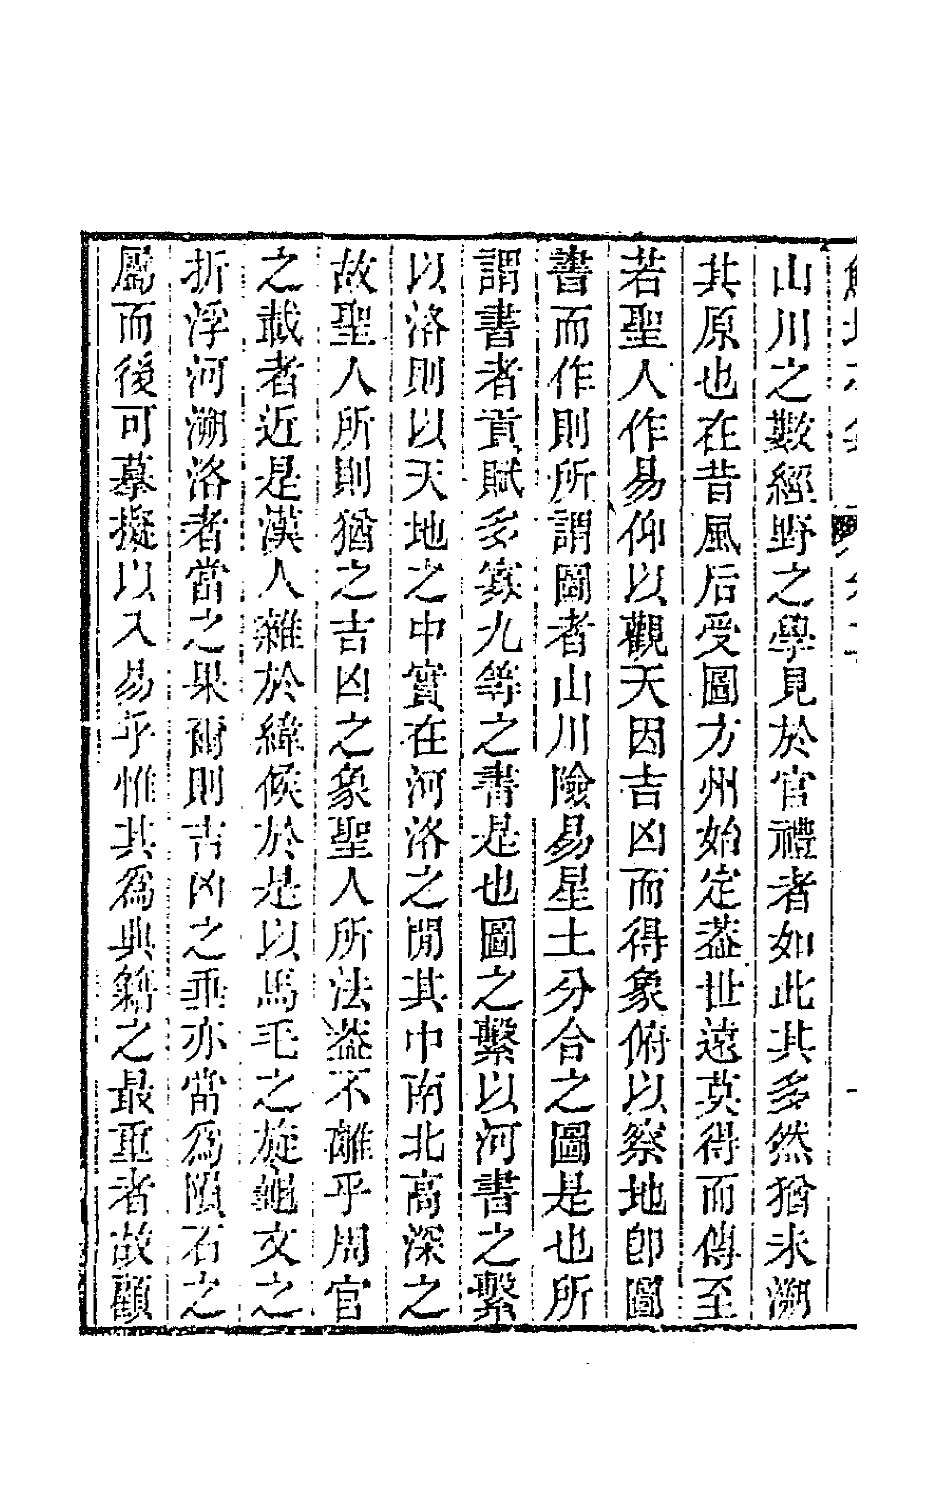 山川之數經野之學見於官禮者如此其多然猶未溯
其原也在昔風后受圖方州始定蓋世遠莫得而傳至
若聖人作易仰以觀天因吉凶而得象俯以察地卽圖
書而作則所謂圖者山川險易星土分合之圖是也所
謂書者貢賦多寡九等之書是也圖之繫以河書之繫
以洛則以天地之中實在河洛之閒其中南北高深之
故聖人所則猶之吉凶之象聖人所法蓋不離乎周官
之載者近是漢人雜於緯候於是以馬毛之旋龜文之
折浮河溯洛者當之果爾則吉凶之垂亦當爲隕石之
鷁而後可摹擬以入易乎惟其爲典籍之最重者故顧